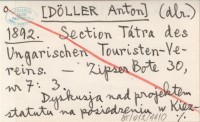 [DÖLLER Anton] (dr.)
1892. Section Tátra des
Ungarischen Touristen-Ve-
reins. — Zipser Bote 30,
nr 7: 3.
Dyskusja nad projektem
statutu na posiedzeniu w Kież-